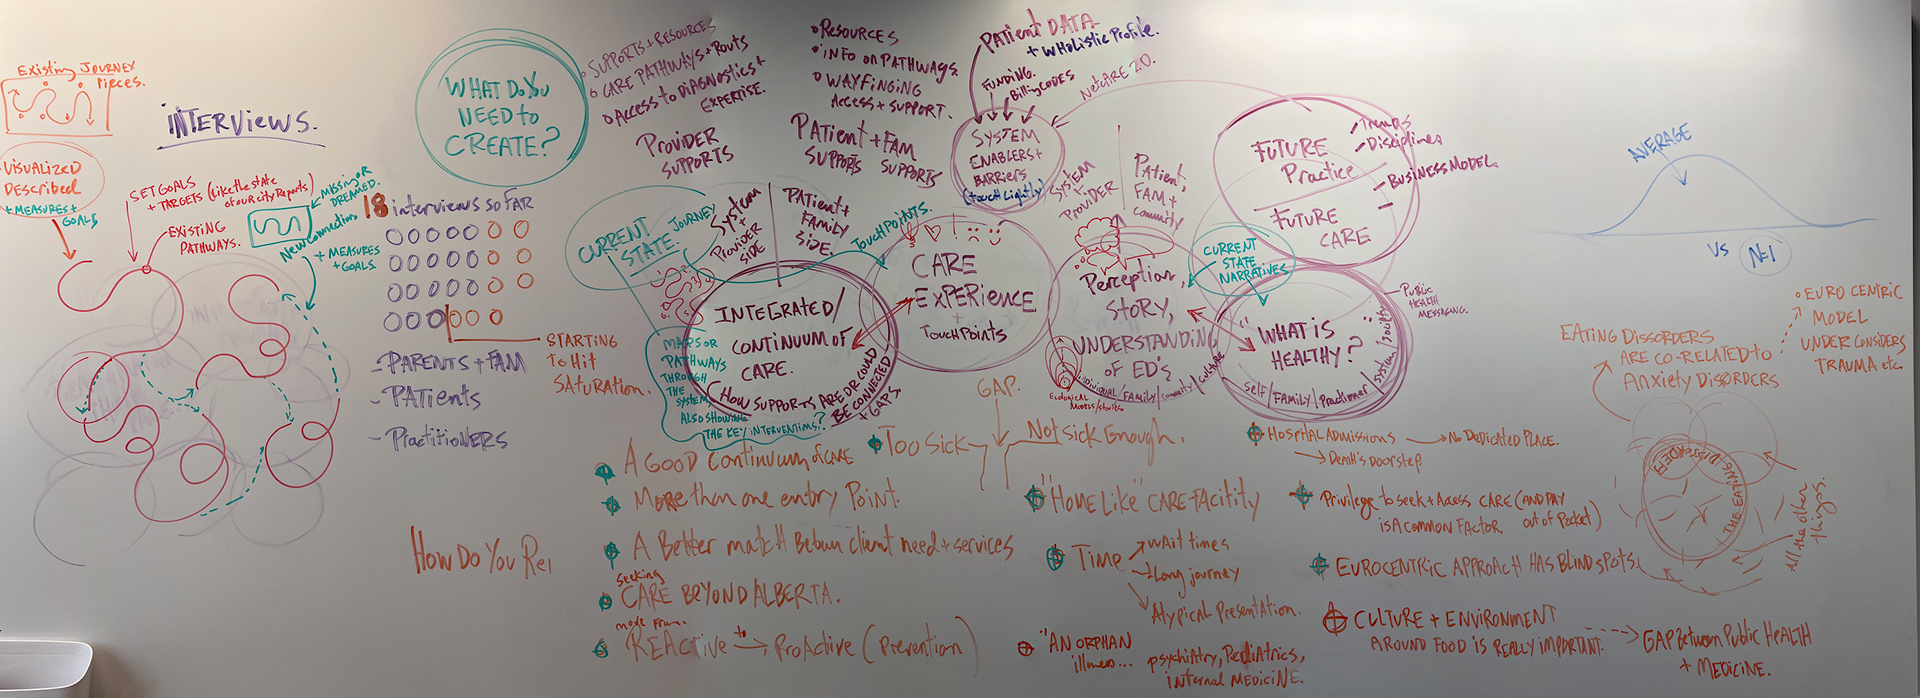 Existing Journey
Pieces.
INTERViews.
VISUALIZED
DescribeD
+ MEASURES +
GOALS
SET GOALS
+ TARGETS (Like the state
of our city Reports)
MISSING OR
DREAMED.
New connections
+ MEASURES
+ GOALS.
EXISTING
PATHWAYS.
18 interviews so FAR
- PARENTS + FAM
- PATients
- PRACTITIONERS
STARTING
To Hit
SATURATION.
WHAT Do You
NEED to
CREATE?
SUPPORTS + RESOURCES
CARE PATHWAYS + Routs
ACCESS to DIAGNOSTICS +
EXPERTISE.
PROVIDER
SUPPORTS
RESOURCES
INFO ON PATHWAYS.
WAYFINGING
Access + SUPPORT.
PATient + FAM
SUPPORTS SUPPORTS
PATient DATA
+ WHolistic Profile.
FUNDING.
Billing CODES
NetCARE 2.0.
SYSTEM
ENABLERS +
BARRIERS
(touch Lightly)
CURRENT
STATE.
JOURNEY
System
+
PROVIDER
SIDE
PATient +
FAMILY
SIDE.
TouchPoints.
SYSTEM
PROVIDER
Patient,
FAM +
community
FUTURE
Practice
- Trends
- Disciplines
- BUSINESS MODEL
FUTURE
CARE
INTEGRATED/
CONTINUUM OF
CARE.
How SUPPORTS ARE OR COULD
BE CONNECTED
+ GAPS.
MAPS OR
PATHWAYS
THROUGH
THE
SYSTEM,
ALSO SHOWING
THE KEY INTERVENTIONS?
CARE
EXPERIENCE
+
TouchPoints
Perception,
STORY,
UNDERSTANDING
OF ED's
INDIVIDUAL/FAMILY/community/CULTURE
Ecological
CURRENT
STATE
NARRATIVES
"WHAT IS
HEALTHY?"
self/FAMILY/Practitioner/system/society
PUBLIC
HEALTH
MESSAGING.
AVERAGE
VS N=1
GAP.
Too Sick
Not sick Enough.
A GOOD Continuum of CARE
More than one entry Point.
A Better match between client need + services
seeking
CARE BEYOND ALBERTA.
more from.
REActive to → ProActive (Prevention)
How Do You Rei
"Home Like" CARE facitity
Time
wait times
Long journey
Atypical Presentation.
"AN ORPHAN
illness...
psychiatry, Pediatrics,
internal MEDICINE.
Hospital Admissions → No Dedicated Place.
→ Death's Doorstep
Privilege to seek + Access CARE (AND PAY
is A common FACTOR. out of Pocket)
EUROCENTRIC APPROACH HAS BLIND SPOTS.
CULTURE + ENVIRONMENT
AROUND FOOD IS REALLY IMPORTANT. → GAP Between Public HEALTH
+ MEDICINE.
EATING DISSORDERS
ARE CO-RELATED to
Anxiety DisORDERS
EURO CENTRIC
MODEL
UNDER CONSIDERS
TRAUMA etc.
THE EATING DISORDER
All the other
things.